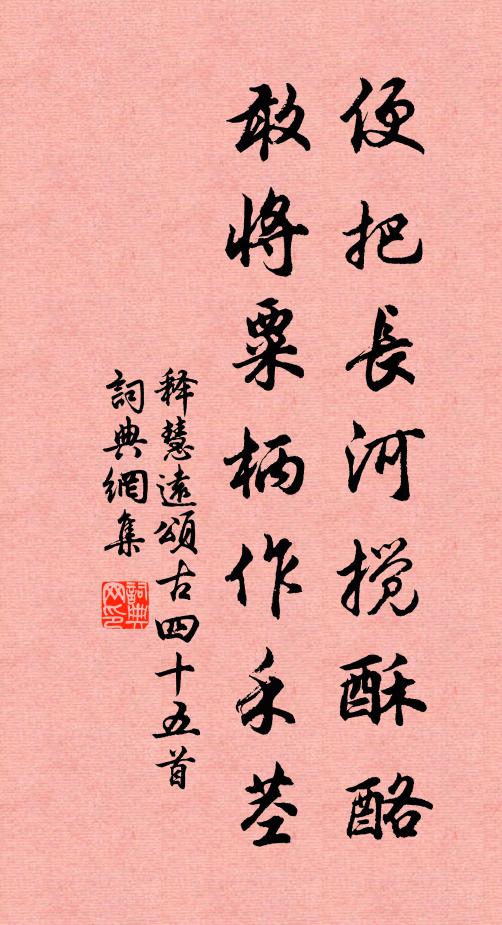 便把長河攪酥酪
敢將粟柄作禾莖
釋慧遠頌古四十五首
詞典網集
詞典
网印